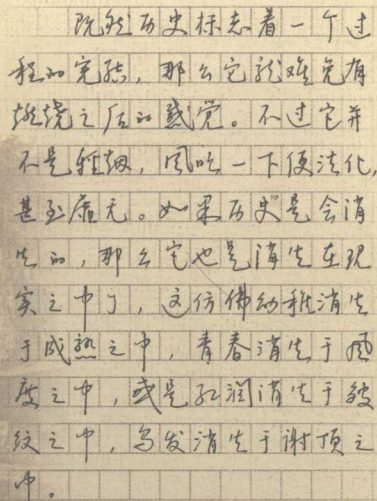 既然历史标志着一个过
程的完结，那么它就难免有
燃烧之后的感觉。不过它并
不是轻烟，风吹一下便淡化，
甚至虚无。如果历史是会消
失的，那么它也是消失在现
实之中了，这仿佛幼稚消失
于成熟之中，青春消失于风
度之中，或是红润消失于皱
纹之中，乌发消失于谢顶之
中。